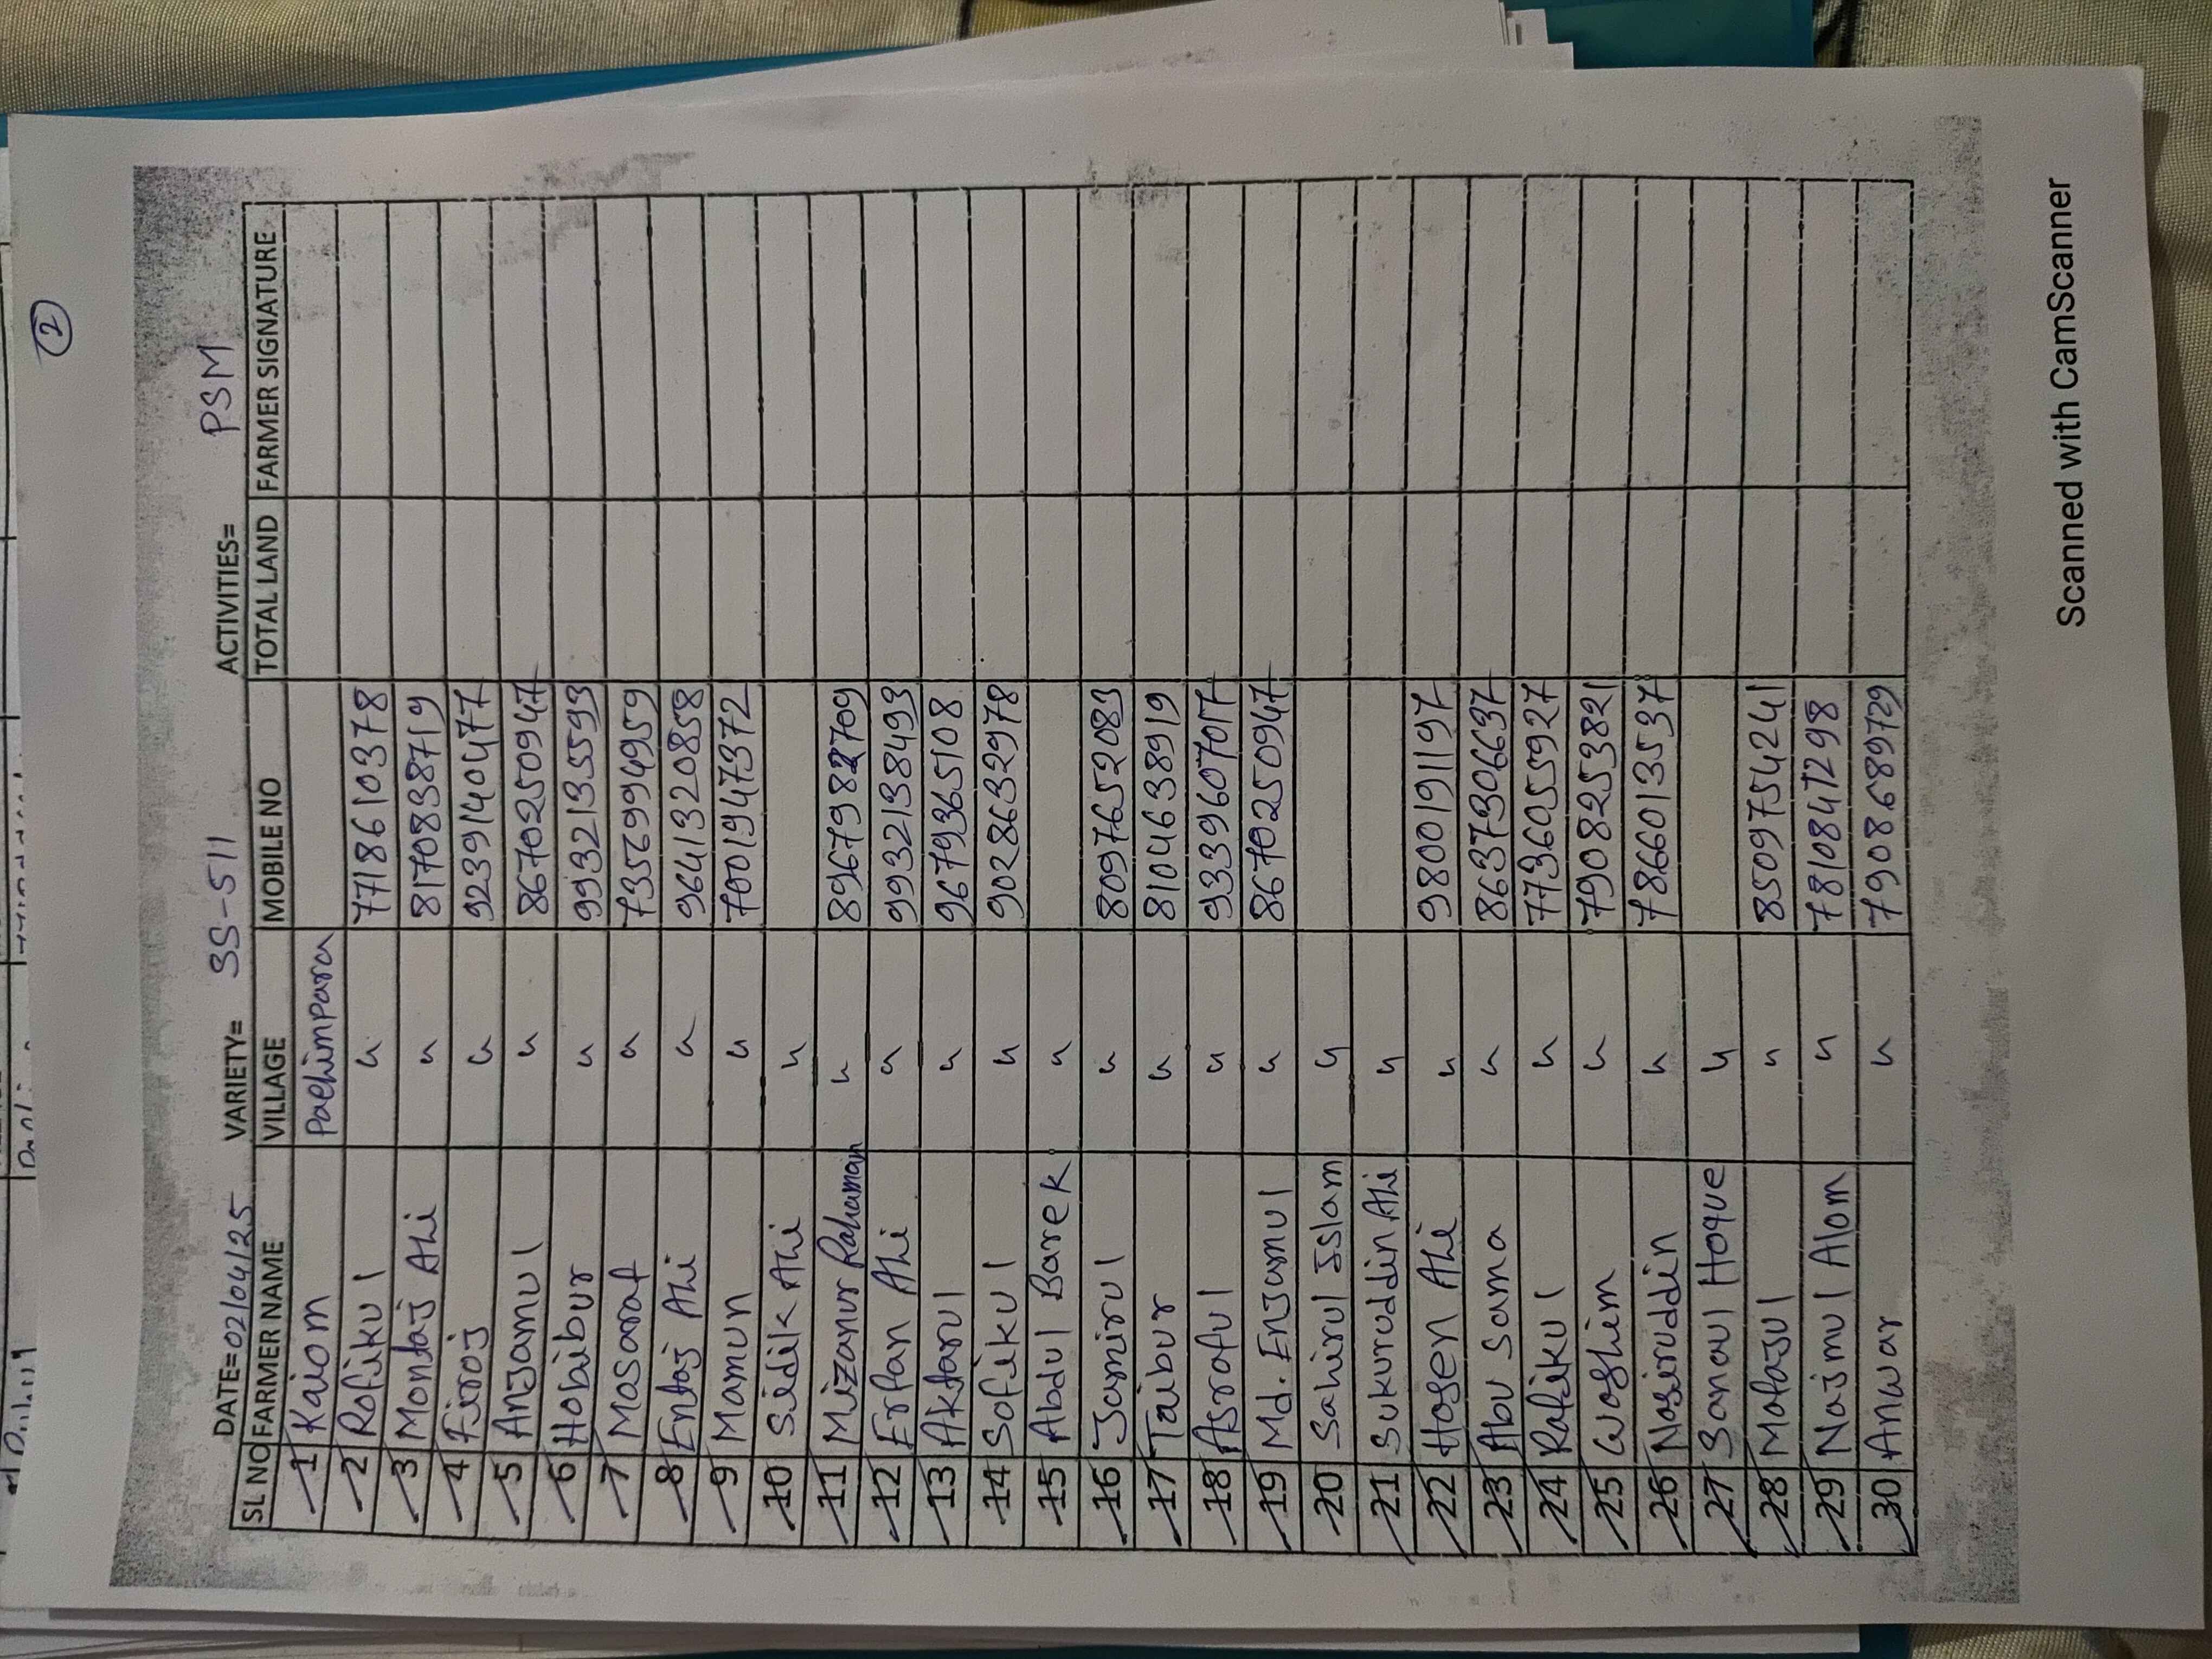 2
DATE=02/04/25 VARIETY= SS-511 ACTIVITIES= PSM
SL NO FARMER NAME VILLAGE MOBILE NO TOTAL LAND FARMER SIGNATURE
1 Kaiom Pachimpara
2 Rofikul " 7718610378
3 Montaj Ali " 8170838719
4 Firoj " 9239140477
5 Anjamul " 8670250947
6 Hobibur " 9932135593
7 Mosaraf " 7356994959
8 Entaj Ali " 9641320858
9 Mamun " 7001947372
10 Sidik Ali "
11 Mizanur Rahaman " 8967982709
12 Erfan Ali " 9932138493
13 Aktarul " 9679365108
14 Sofikul " 9028632978
15 Abdul Barek "
16 Jamirul " 8097652083
17 Taibur " 8104638919
18 Asraful " 9339607017
19 Md. Enjamul " 8670250947
20 Sahirul Islam "
21 Sukuruddin Ali "
22 Hosen Ali " 9800191197
23 Abu Sama " 8637306637
24 Rafikul " 7736055927
25 Woshim " 7908253821
26 Nasiruddin " 7866013537
27 Sanaul Hoque "
28 Mofajul " 8509754241
29 Najmul Alom " 7810847298
30 Anwar " 7908689729
Scanned with CamScanner